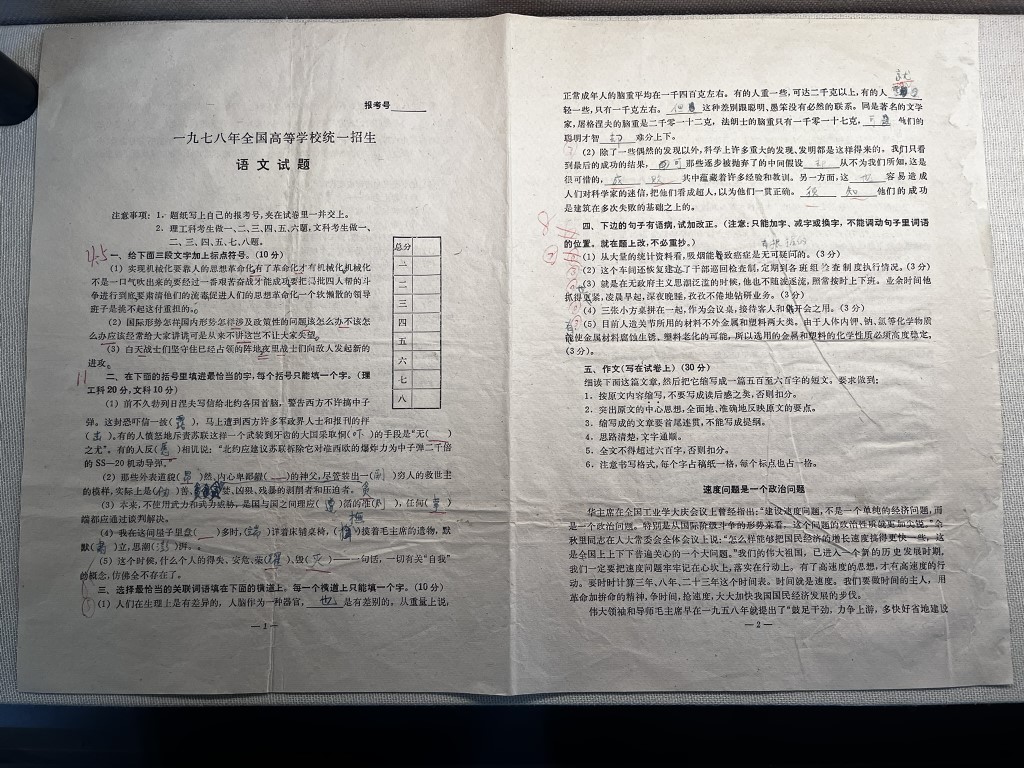 报考号
一九七八年全国高等学校统一招生
语文试题
注意事项：1．题纸写上自己的报考号，夹在试卷里一并交上。
2．理工科考生做一、二、三、四、五、六题，文科考生做一、
二、三、四、五、七、八题。
总分
一
二
三
四
五
六
七
八
一、给下面三段文字加上标点符号。（10分）
（1）实现机械化要靠人的思想革命化有了革命化才有机械化机械化
不是一口气吹出来的要经过一番艰苦奋战才能成功要把四批四人帮的斗
争进行到底要肃清他们的流毒促进人们的思想革命化一个软懒散的领导
班子是挑不起这付重担的
（2）国际形势怎样国内形势怎样涉及政策性的问题该怎么办不该怎
么办应该经常给大家讲讲可是从来不讲这岂不让大家失望
（3）白天战士们坚守住已经占领的阵地夜里战士们向敌人发起新的
进攻
11
二、在下面的括号里填进最恰当的字，每个括号只能填一个字。（理
工科20分，文科10分）
（1）前不久勃列日涅夫写信给北约各国首脑，警告西方不许搞中子
弹。这封恐吓信一披（露），马上遭到西方许多军政界人士和报刊的抨
（击）。有的人愤怒地斥责苏联这样一个武装到牙齿的大国采取恫（吓）的手段是“无（ ）
之尤”。有的人反（ ）相讥说：“北约应建议苏联拆除它对准西欧的爆炸力为中子弹二千倍
的SS—20机动导弹。”
（2）那些外表道貌（ ）然、内心卑鄙龌（ ）的神父，尽管装出一（副）穷人的救世主
的模样，实际上是（ ）善、 婪、凶狠、残暴的剥削者和压迫者。
（3）本来，不使用武力和武力威胁，是国与国之间理应（遵）循的准（则），任何（ ）
端都应通过谈判解决。
（4）我在这间屋子里盘（ ）多时，（端）详着床铺桌椅，（ ）摸着毛主席的遗物，默
默（肃）立，思潮（澎）湃。
（5）这个时候，什么个人的得失、安危、荣（耀）、毁（灭）——一句话，一切有关“自我”
的概念，仿佛全不存在了。
三、选择最恰当的关联词语填在下面的横道上，每一个横道上只能填一个字。（10分）
（1）人们在生理上是有差异的，人脑作为一种器官，也是有差别的。从重量上说，
—1—
正常成年人的脑重平均在一千四百克左右。有的人重一些，可达二千克以上，有的人 就
轻一些，只有一千克左右。 这种差别跟聪明、愚笨没有必然的联系。同是著名的文学
家，屠格涅夫的脑重是二千零一十二克，法朗士的脑重只有一千零一十七克，可是他们的
聪明才智 却 难分上下。
（2）除了一些偶然的发现以外，科学上许多重大的发现、发明都是这样得来的，我们只看
到最后的成功的结果， 那些逐步被抛弃了的中间假设 却 从不为我们所知，这是
很可惜的， 其中蕴藏着许多经验和教训。另一方面，这 也 容易造成
人们对科学家的迷信，把他们看成超人，以为他们一贯正确。 须知 他们的成功
是建筑在多次失败的基础之上的。
8
四、下边的句子有语病，试加改正。（注意：只能加字、减字或换字，不能调动句子里词语
的位置。就在题上改，不必重抄。）
（1）从大量的统计资料看，吸烟能导致癌症是无可疑问的。（3分）
（2）这个车间还恢复建立了干部巡回检查制，定期到各班组检查制度执行情况。（3分）
（3）就是在无政府主义思潮泛滥的时候，他也不随波逐流，照常按时上下班。业余时间他
抓得更紧，凌晨早起，深夜晚睡，孜孜不倦地钻研业务。（3分）
（4）三张小方桌拼在一起，作为会议桌，接待客人和开会之用。（3分）
（5）目前人造关节所用的材料不外金属和塑料两大类。由于人体内钾、钠、氯等化学物质
能使金属材料腐蚀生锈、塑料老化的可能，所以选用的金属和塑料的化学性质必须高度稳定。
（3分）。
五、作文（写在试卷上）（30分）
细读下面这篇文章，然后把它缩写成一篇五百至六百字的短文。要求做到：
1．按原文内容缩写，不要写成读后感之类，否则扣分。
2．突出原文的中心思想，全面地、准确地反映原文的要点。
3．缩写成的文章要首尾连贯，不能写成提纲。
4．思路清楚，文字通顺。
5．全文不得超过六百字，否则扣分。
6．注意书写格式，每个字占稿纸一格，每个标点也占一格。
速度问题是一个政治问题
华主席在全国工业学大庆会议上曾经指出：“建设速度问题，不是一个单纯的经济问题，而
是一个政治问题。特别是从国际阶级斗争的形势来看，这个问题的政治性质就更加尖锐。”余
秋里同志在人大常委会全体会议上说：“怎么样能够把国民经济的增长速度搞得更快一些，这
是全国上上下下普遍关心的一个大问题。”我们的伟大祖国，已进入一个新的历史发展时期，
我们一定要把速度问题牢牢记在心坎上，落实在行动上。有了高速度的思想，才有高速度的行
动。要时时计算三年、八年、二十三年这个时间表。时间就是速度。我们要做时间的主人，用
革命加拚命的精神，争时间，抢速度，大大加快我国国民经济发展的步伐。
伟大领袖和导师毛主席早在一九五八年就提出了“鼓足干劲，力争上游，多快好省地建设
—2—